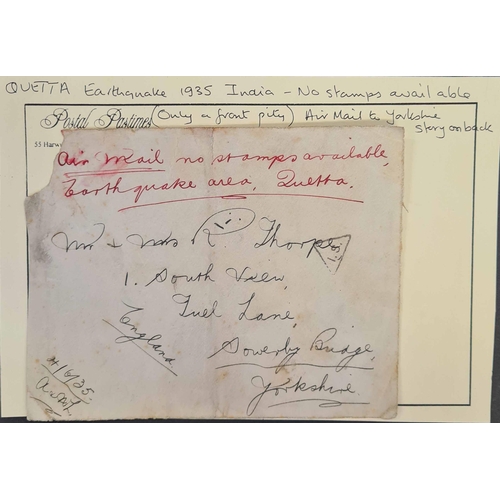 QUETTA Earthquake 1935 India - No stamps available
Postal Pastimes (Only a front pity) Air Mail to Yorkshire
story on back
55 Harw
Air Mail no stamps available,
Earth quake area, Quetta.
Mr + Mrs R. Thorpe
1. South View,
Fuel Lane,
England
Sowerby Bridge,
Yorkshire.